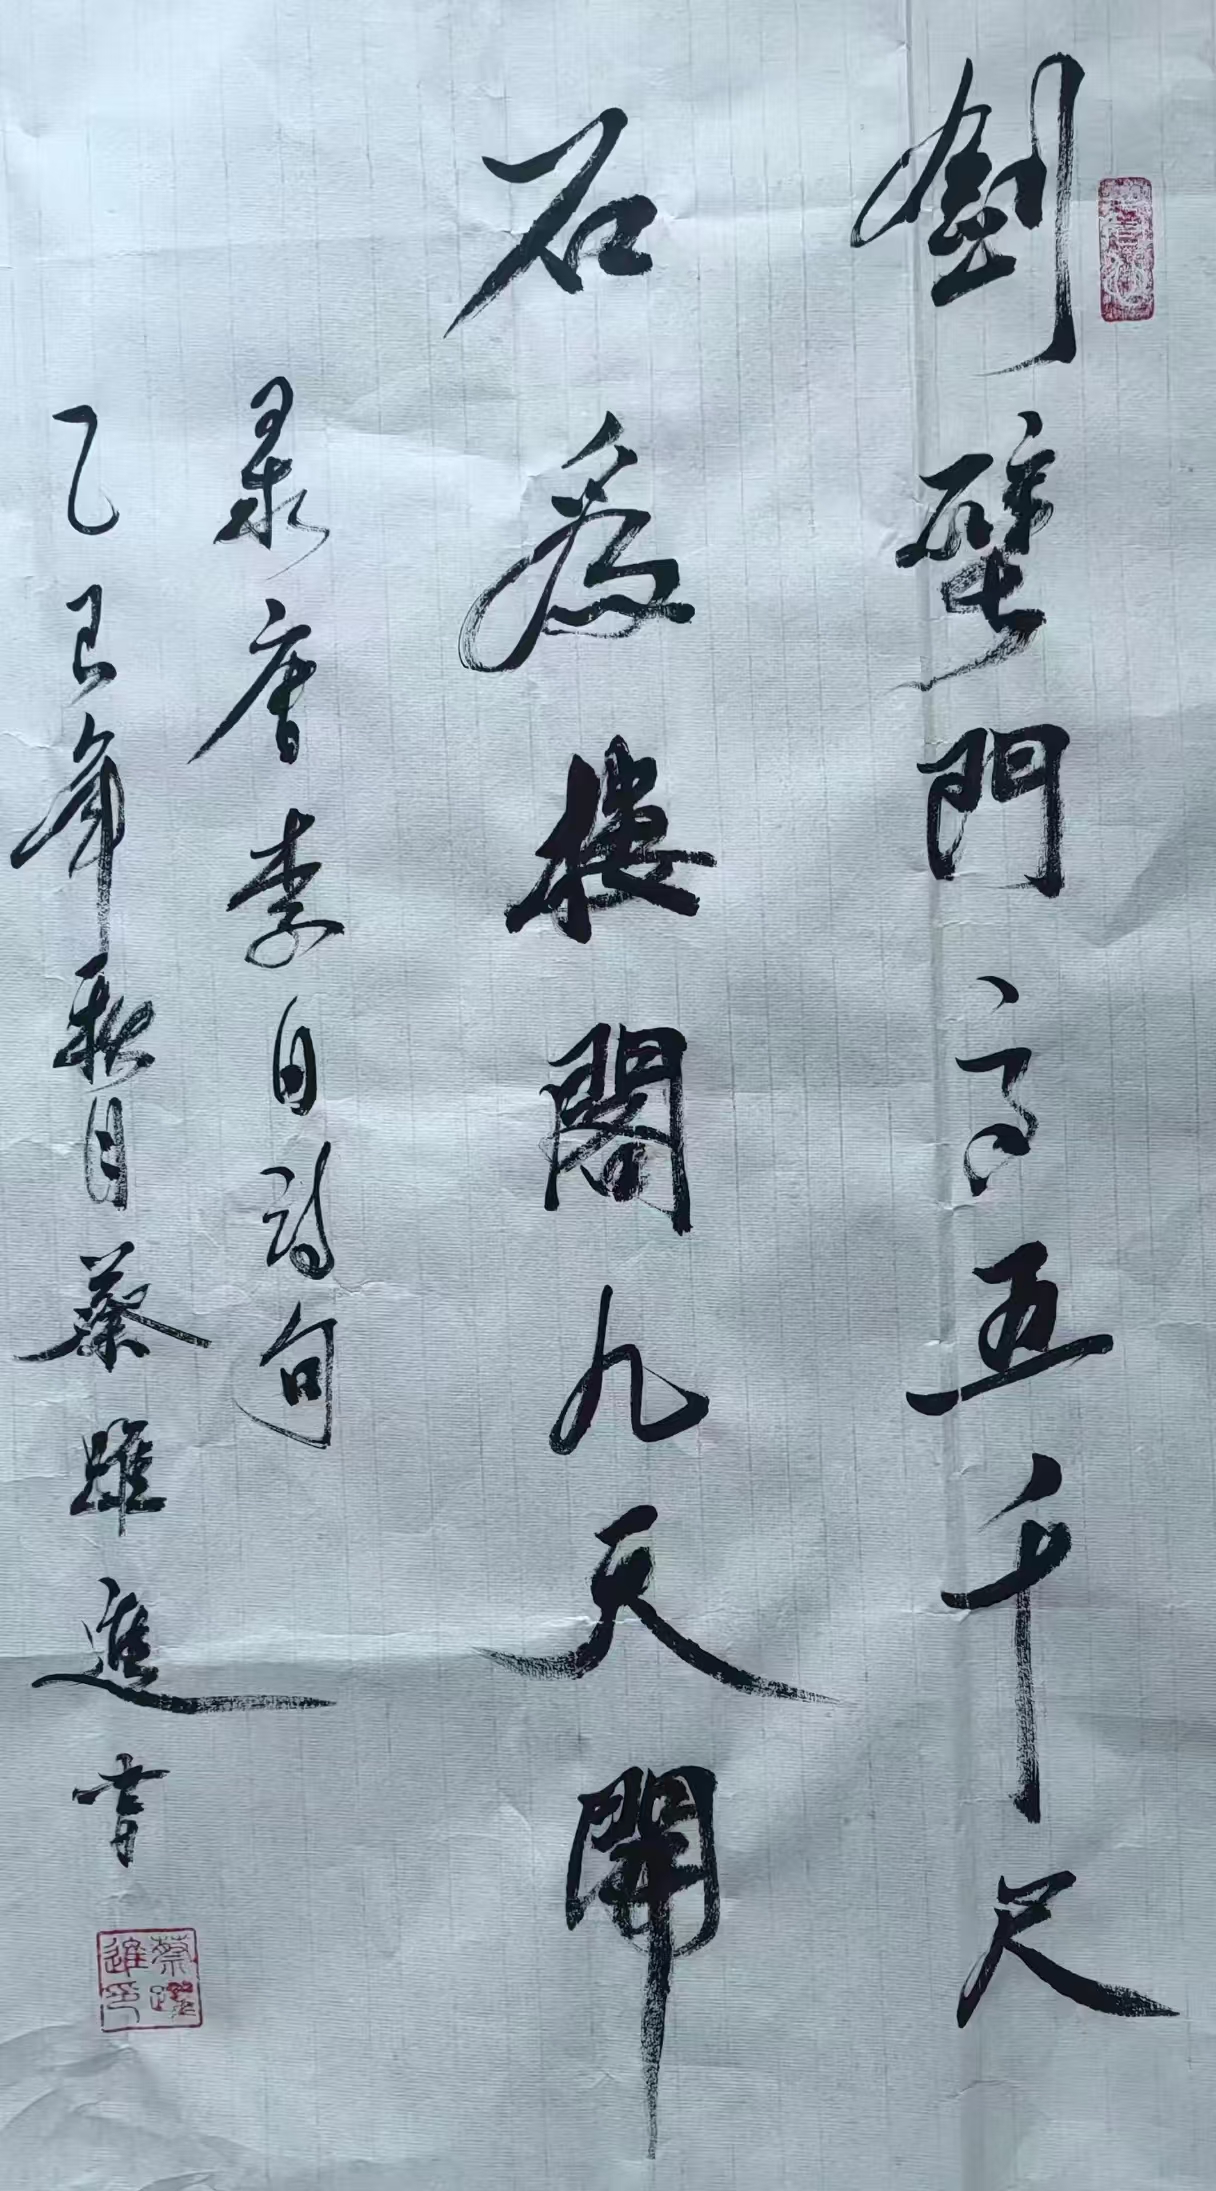 劍壁門高五千尺
石為樓閣九天開
录唐李白詩句
乙巳年秋月蔡躍進書
蔡躍進印